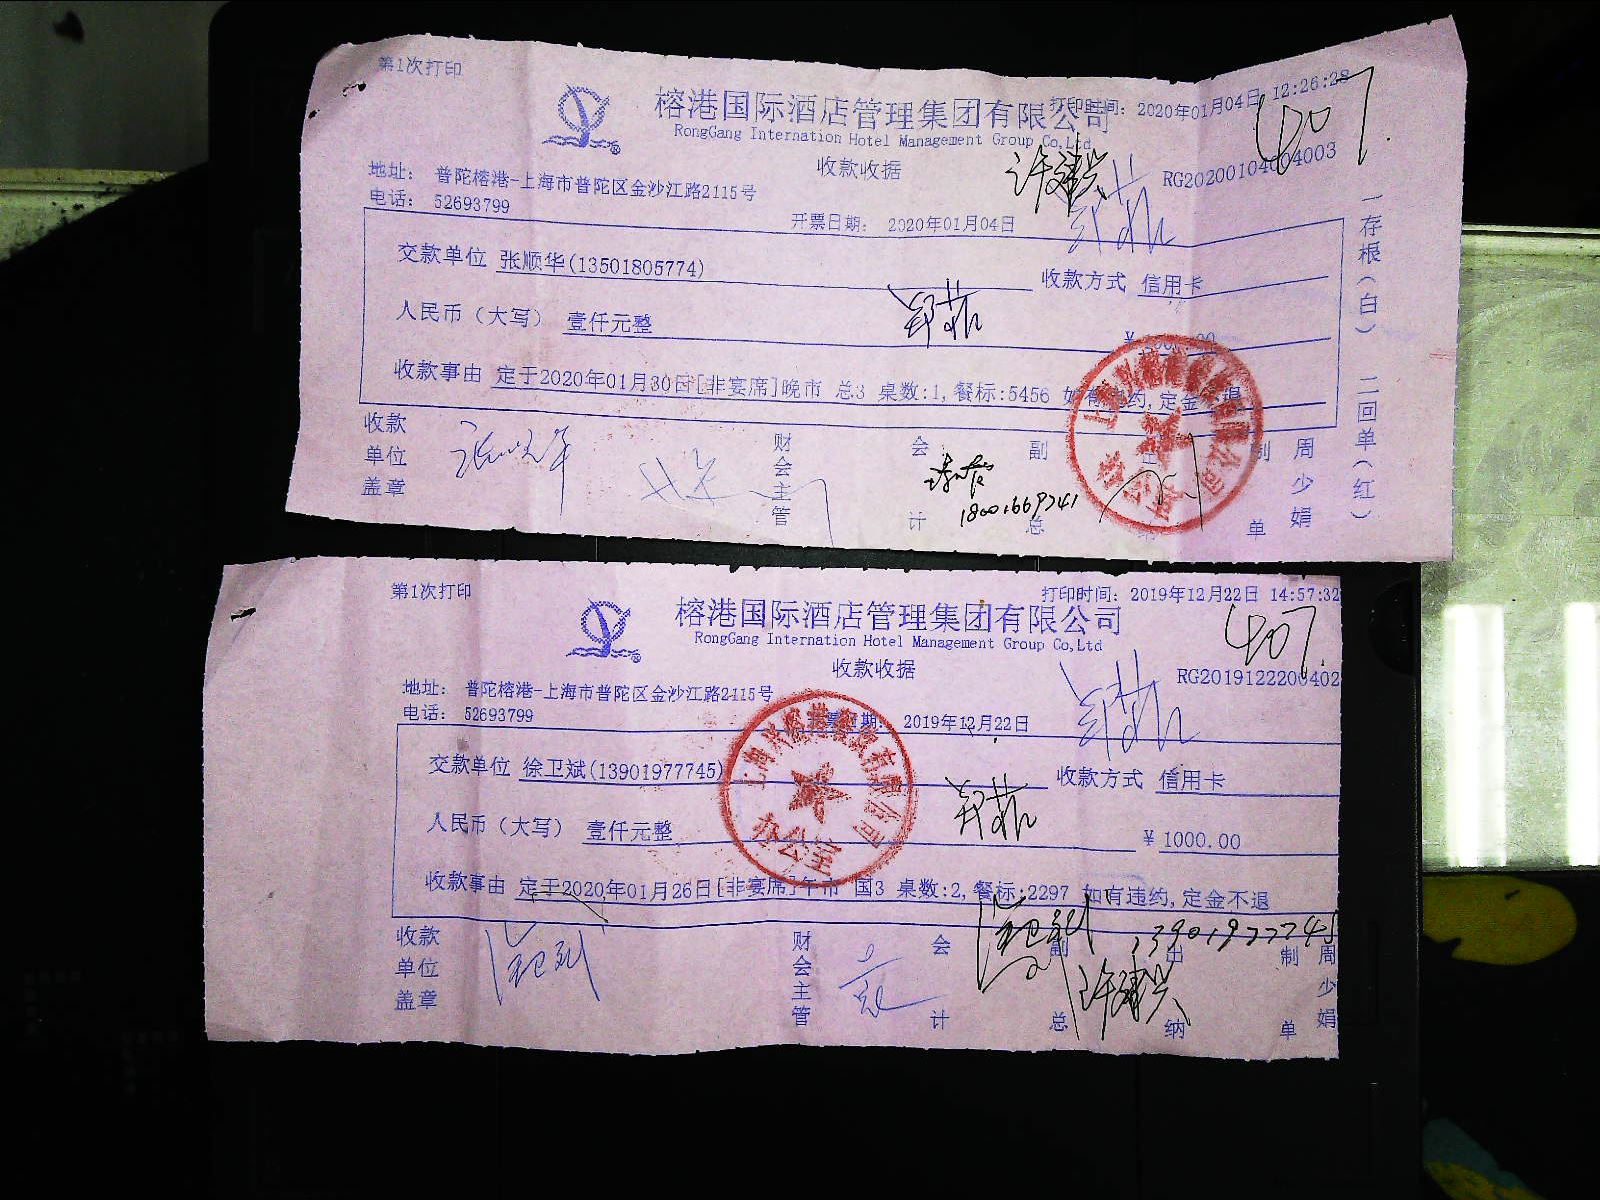 第1次打印
打印时间: 2020年01月04日 12:26:28
榕港国际酒店管理集团有限公司
RongGang Internation Hotel Management Group Co,Ltd
407.
收款收据
许建兴
RG20200104004003
地址: 普陀榕港-上海市普陀区金沙江路2115号
电话: 52693799
开票日期: 2020年01月04日
交款单位 张顺华(13501805774)
收款方式 信用卡
人民币(大写) 壹仟元整
收款事由 定于2020年01月30日[非宴席]晚市 总3 桌数:1,餐标:5456 如有违约,定金不退
收款单位盖章
财会主管
会计
副总
出纳
制单
周少娟
一存根(白) 二回单(红)
18001669741
第1次打印
打印时间: 2019年12月22日 14:57:32
榕港国际酒店管理集团有限公司
RongGang Internation Hotel Management Group Co,Ltd
407.
收款收据
RG20191222200402
地址: 普陀榕港-上海市普陀区金沙江路2115号
电话: 52693799
开票日期: 2019年12月22日
交款单位 徐卫斌(13901977745)
收款方式 信用卡
人民币(大写) 壹仟元整
¥ 1000.00
收款事由 定于2020年01月26日[非宴席]午市 国3 桌数:2,餐标:2297 如有违约,定金不退
办公室
13901977745
收款单位盖章
财会主管
会计
副总
许建兴
出纳
制单
周少娟